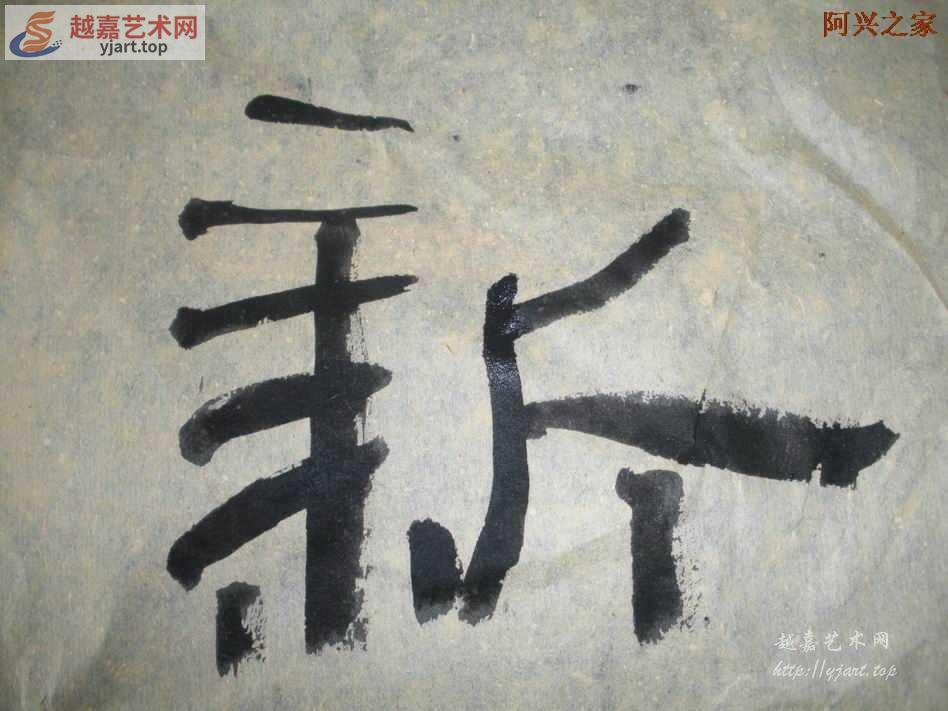 越嘉艺术网
yjart.top
阿兴之家
新
越嘉艺术网
http://yjart.top